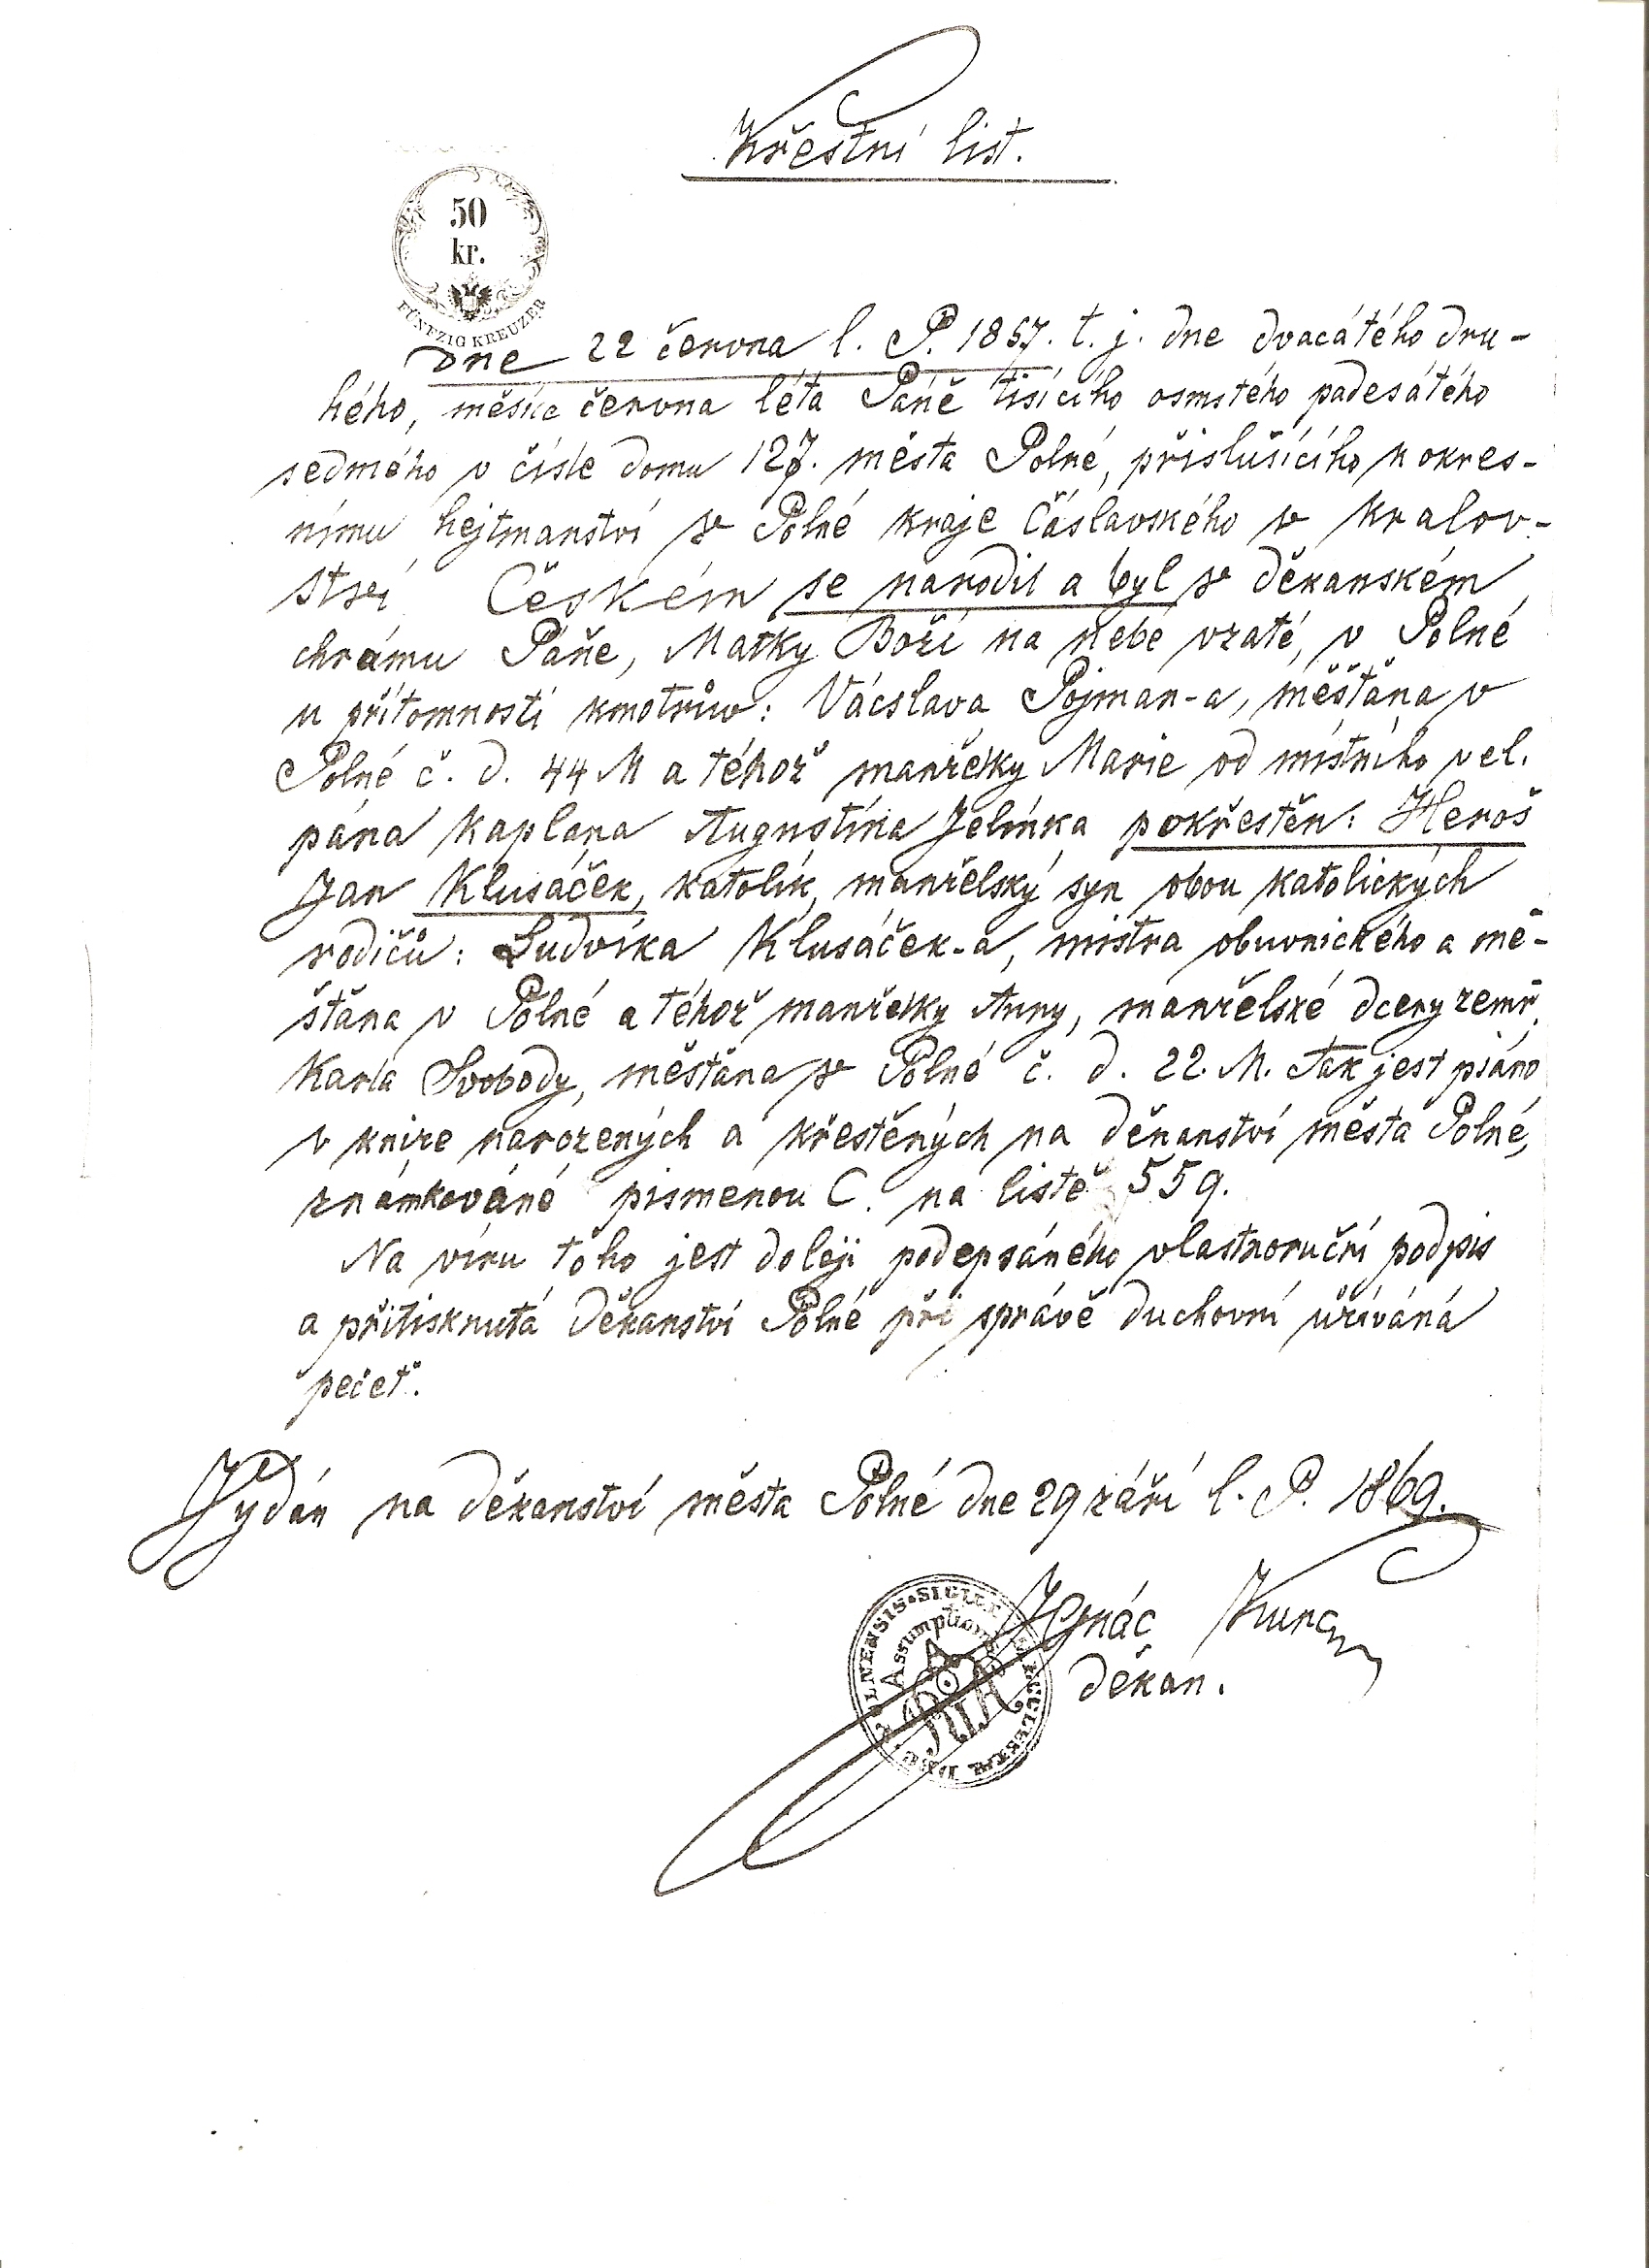 Křestní list.
50
kr.
FÜNFZIG KREUZER
Dne 22 června l. P. 1857. t. j. dne dvacátého dru-
hého, měsíce června léta Páně tisícího osmstého padesátého
sedmého v čísle domu 127. města Polné, přislušícího k okres-
nímu hejtmanství v Polné kraje Čáslavského v kralov-
ství Českém se narodil a byl v děkanském
chrámu Páně, Matky Boží na nebe vzaté, v Polné
u přítomnosti kmotrův: Vácslava Pojman-a, měšťana v
Polné č. d. 44 M a téhož manželky Marie od místního vel.
pána kaplana Augustina Jelínka pokřestěn: Heroš
Jan Klusáček, katolík, manželský syn obou katolických
rodičů: Ludvíka Klusáček-a, mistra obuvnického a mě-
šťana v Polné a téhož manželky Anny, manželské dcery zemř.
Karla Svobody, měšťana v Polné č. d. 22. M. Tak jest psáno
v knize narozených a křestěných na děkanství města Polné,
známkované pismenou C. na listě 559.
Na víru toho jest doleji podepsáného vlastnoruční podpis
a přitisknutá děkanství Polné při správě duchovní užíváná
pečeť.
Vydán na děkanství města Polné dne 29 září l. P. 1869.
Ignác Kurc
děkan.
Assumptionis